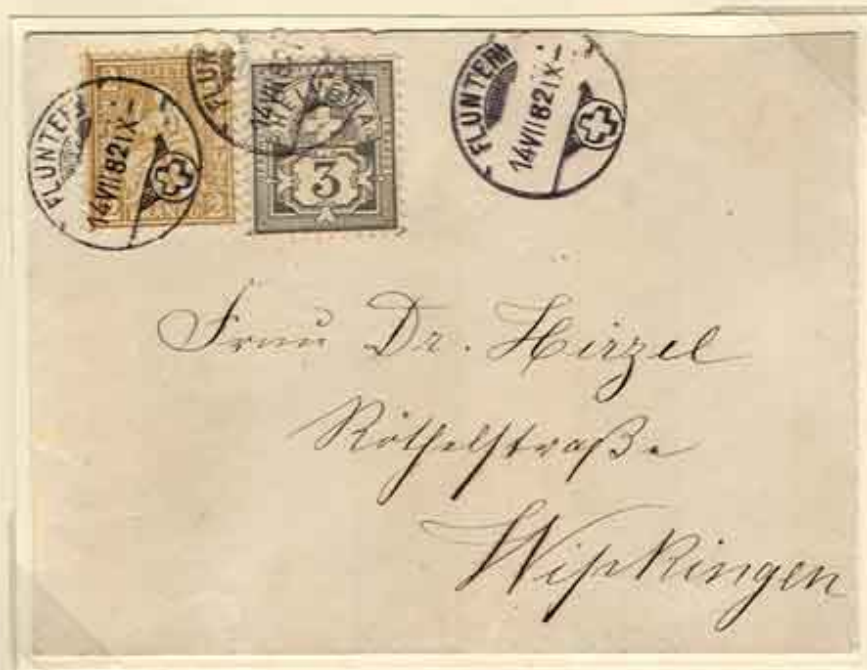 FLUNTERN
14 VII 82 IX –
FLUN
14 VII 82
HELVETIA
3
FLUNTERN
14 VII 82 IX –
Frau Dr. Hirzel
Röthelstraße
Wipkingen